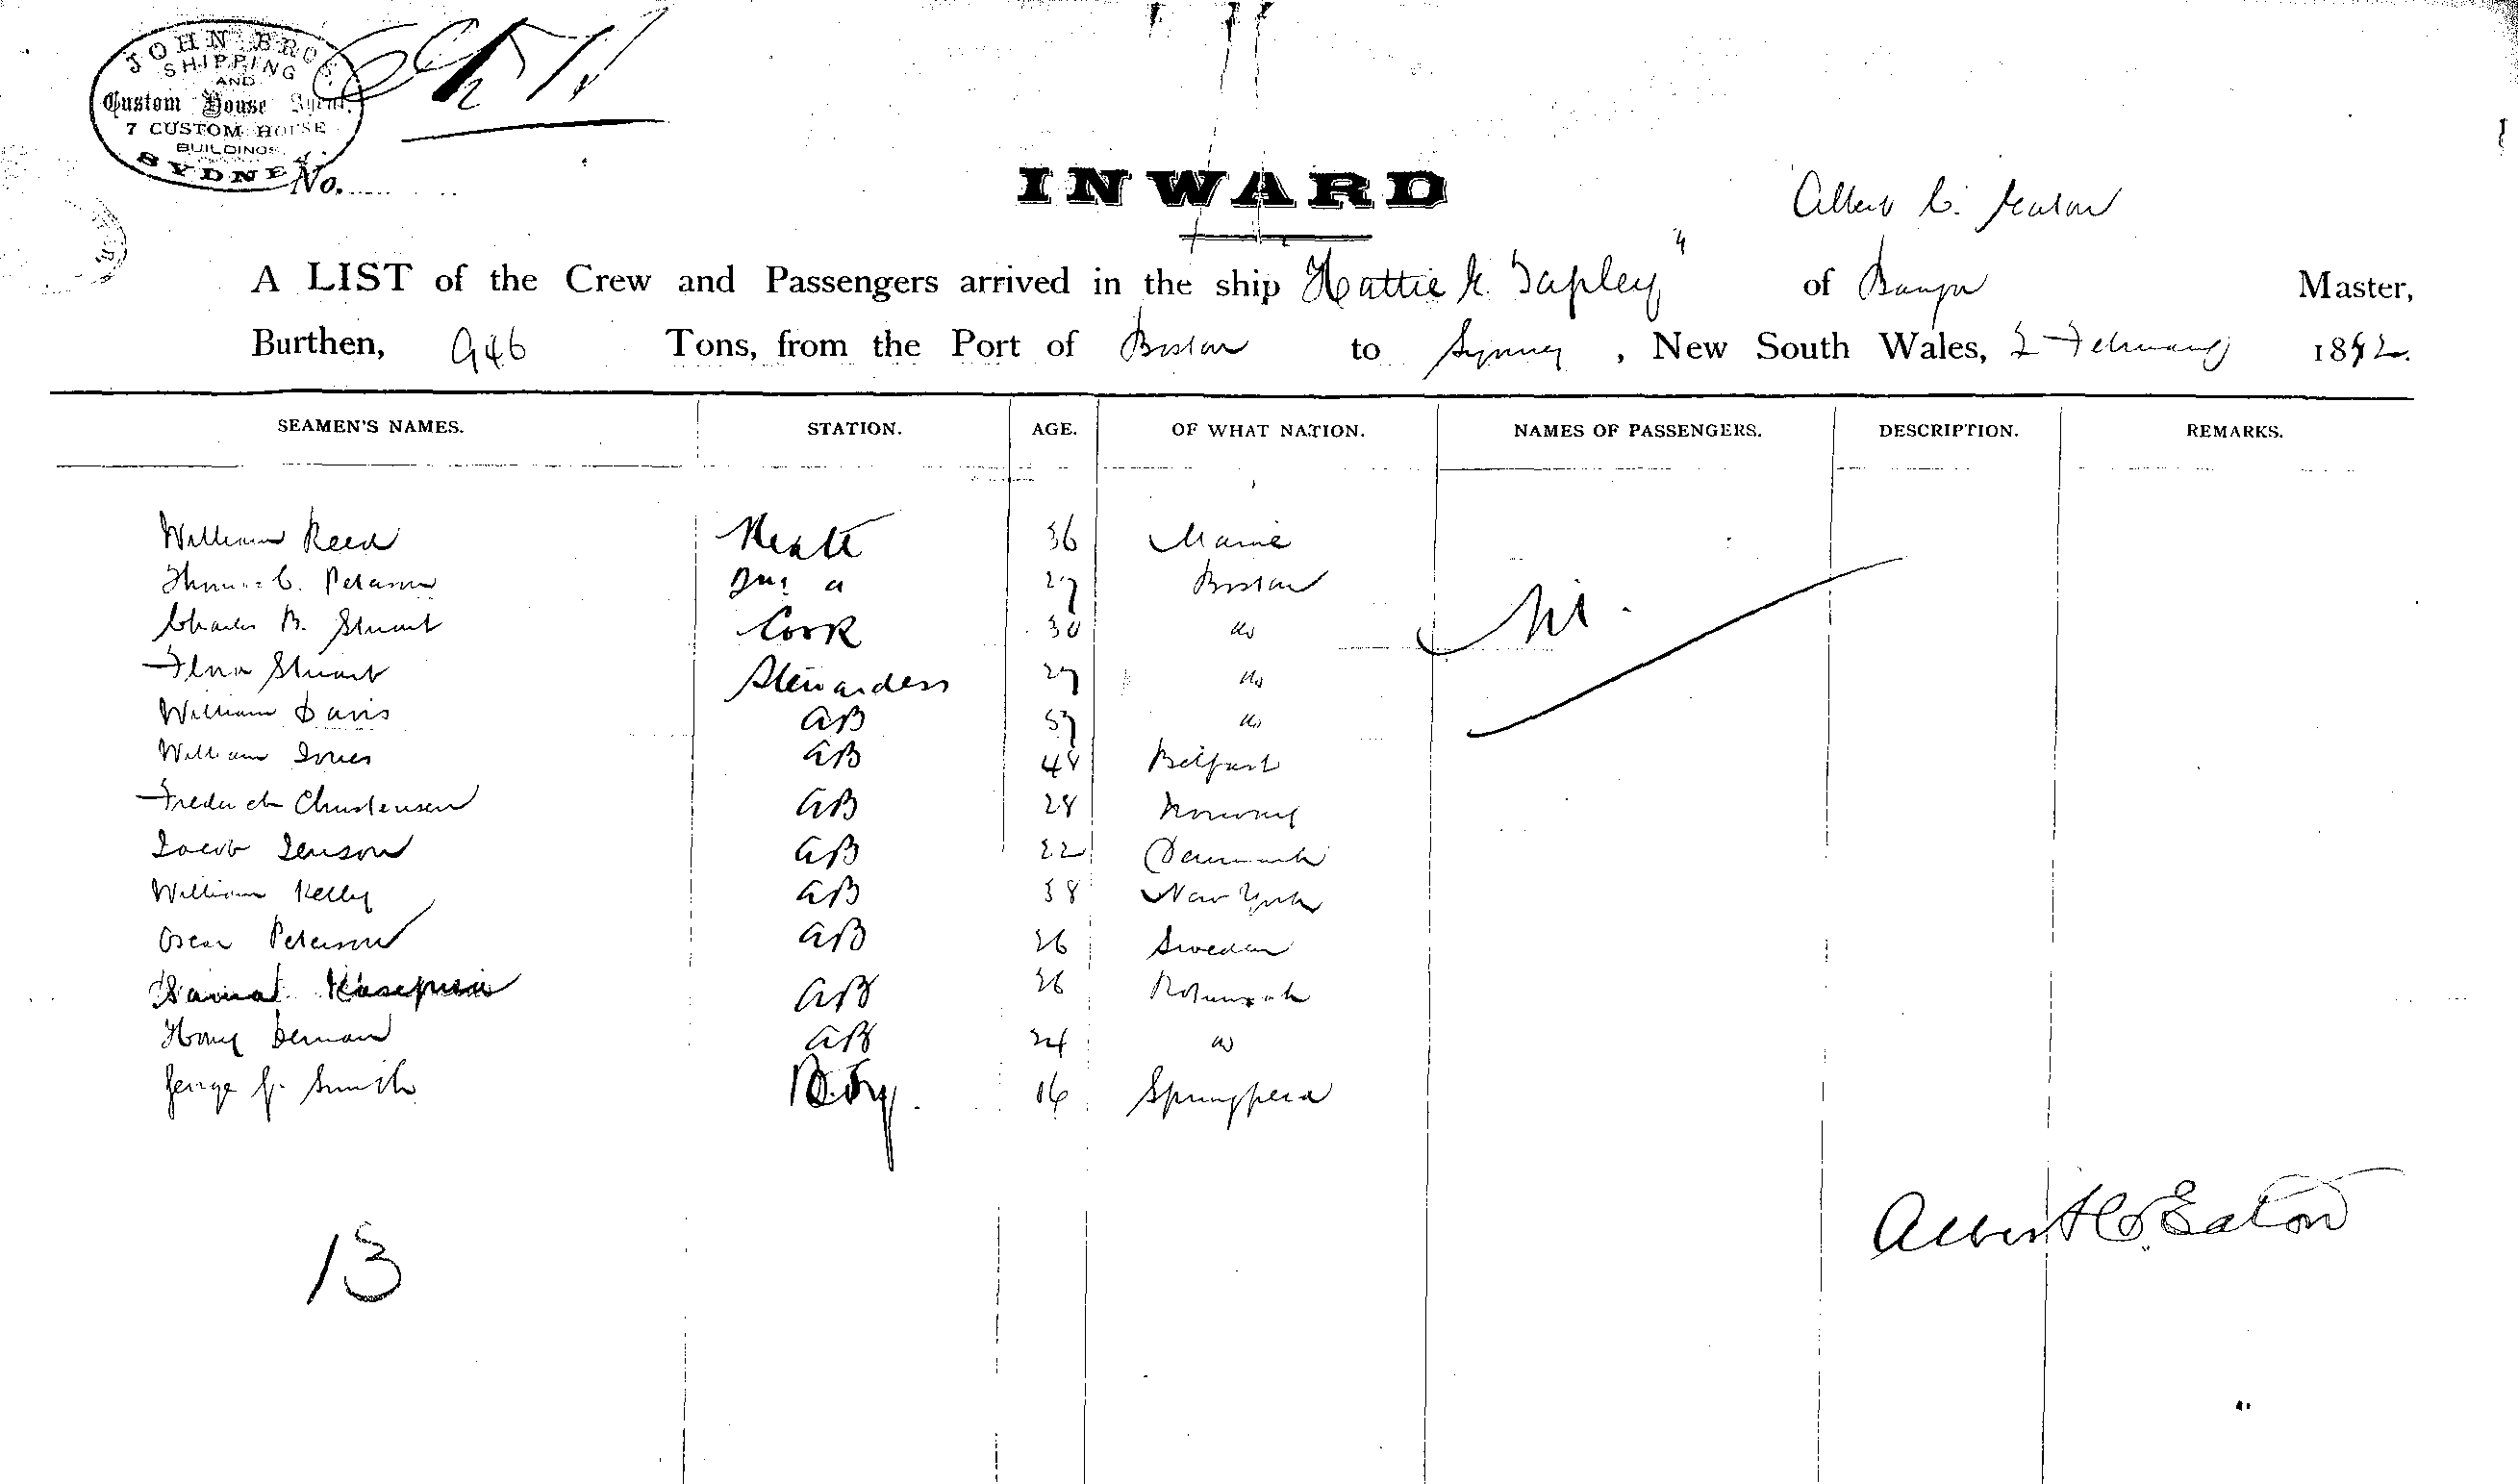 JOHN BROS.
SHIPPING
AND
Custom House Agent,
7 CUSTOM HOUSE
BUILDINGS,
SYDNEY
No.
INWARD
Albert C. Eaton
A LIST of the Crew and Passengers arrived in the ship Hattie N. Tapley" of Bangor Master,
Burthen, 946 Tons, from the Port of Boston to Sydney, New South Wales, 2 February 1892.
SEAMEN'S NAMES. STATION. AGE. OF WHAT NATION. NAMES OF PASSENGERS. DESCRIPTION. REMARKS.
William Reed Mate 36 Maine
Thomas C. Peterson 2nd " 27 Boston Nil.
Charles B. Stuart Cook 30 do
Stuart Stewardess 27 do
William Davis AB 57 do
William Jones AB 48 Belfast
Frederick Christensen AB 28 Norway
Jacob Jenson AB 22 Denmark
William Kelly AB 38 New York
Oscar Peterson AB 26 Sweden
AB 26
AB 24 do
George J. Smith Boy. 16
13
Albert C. Eaton